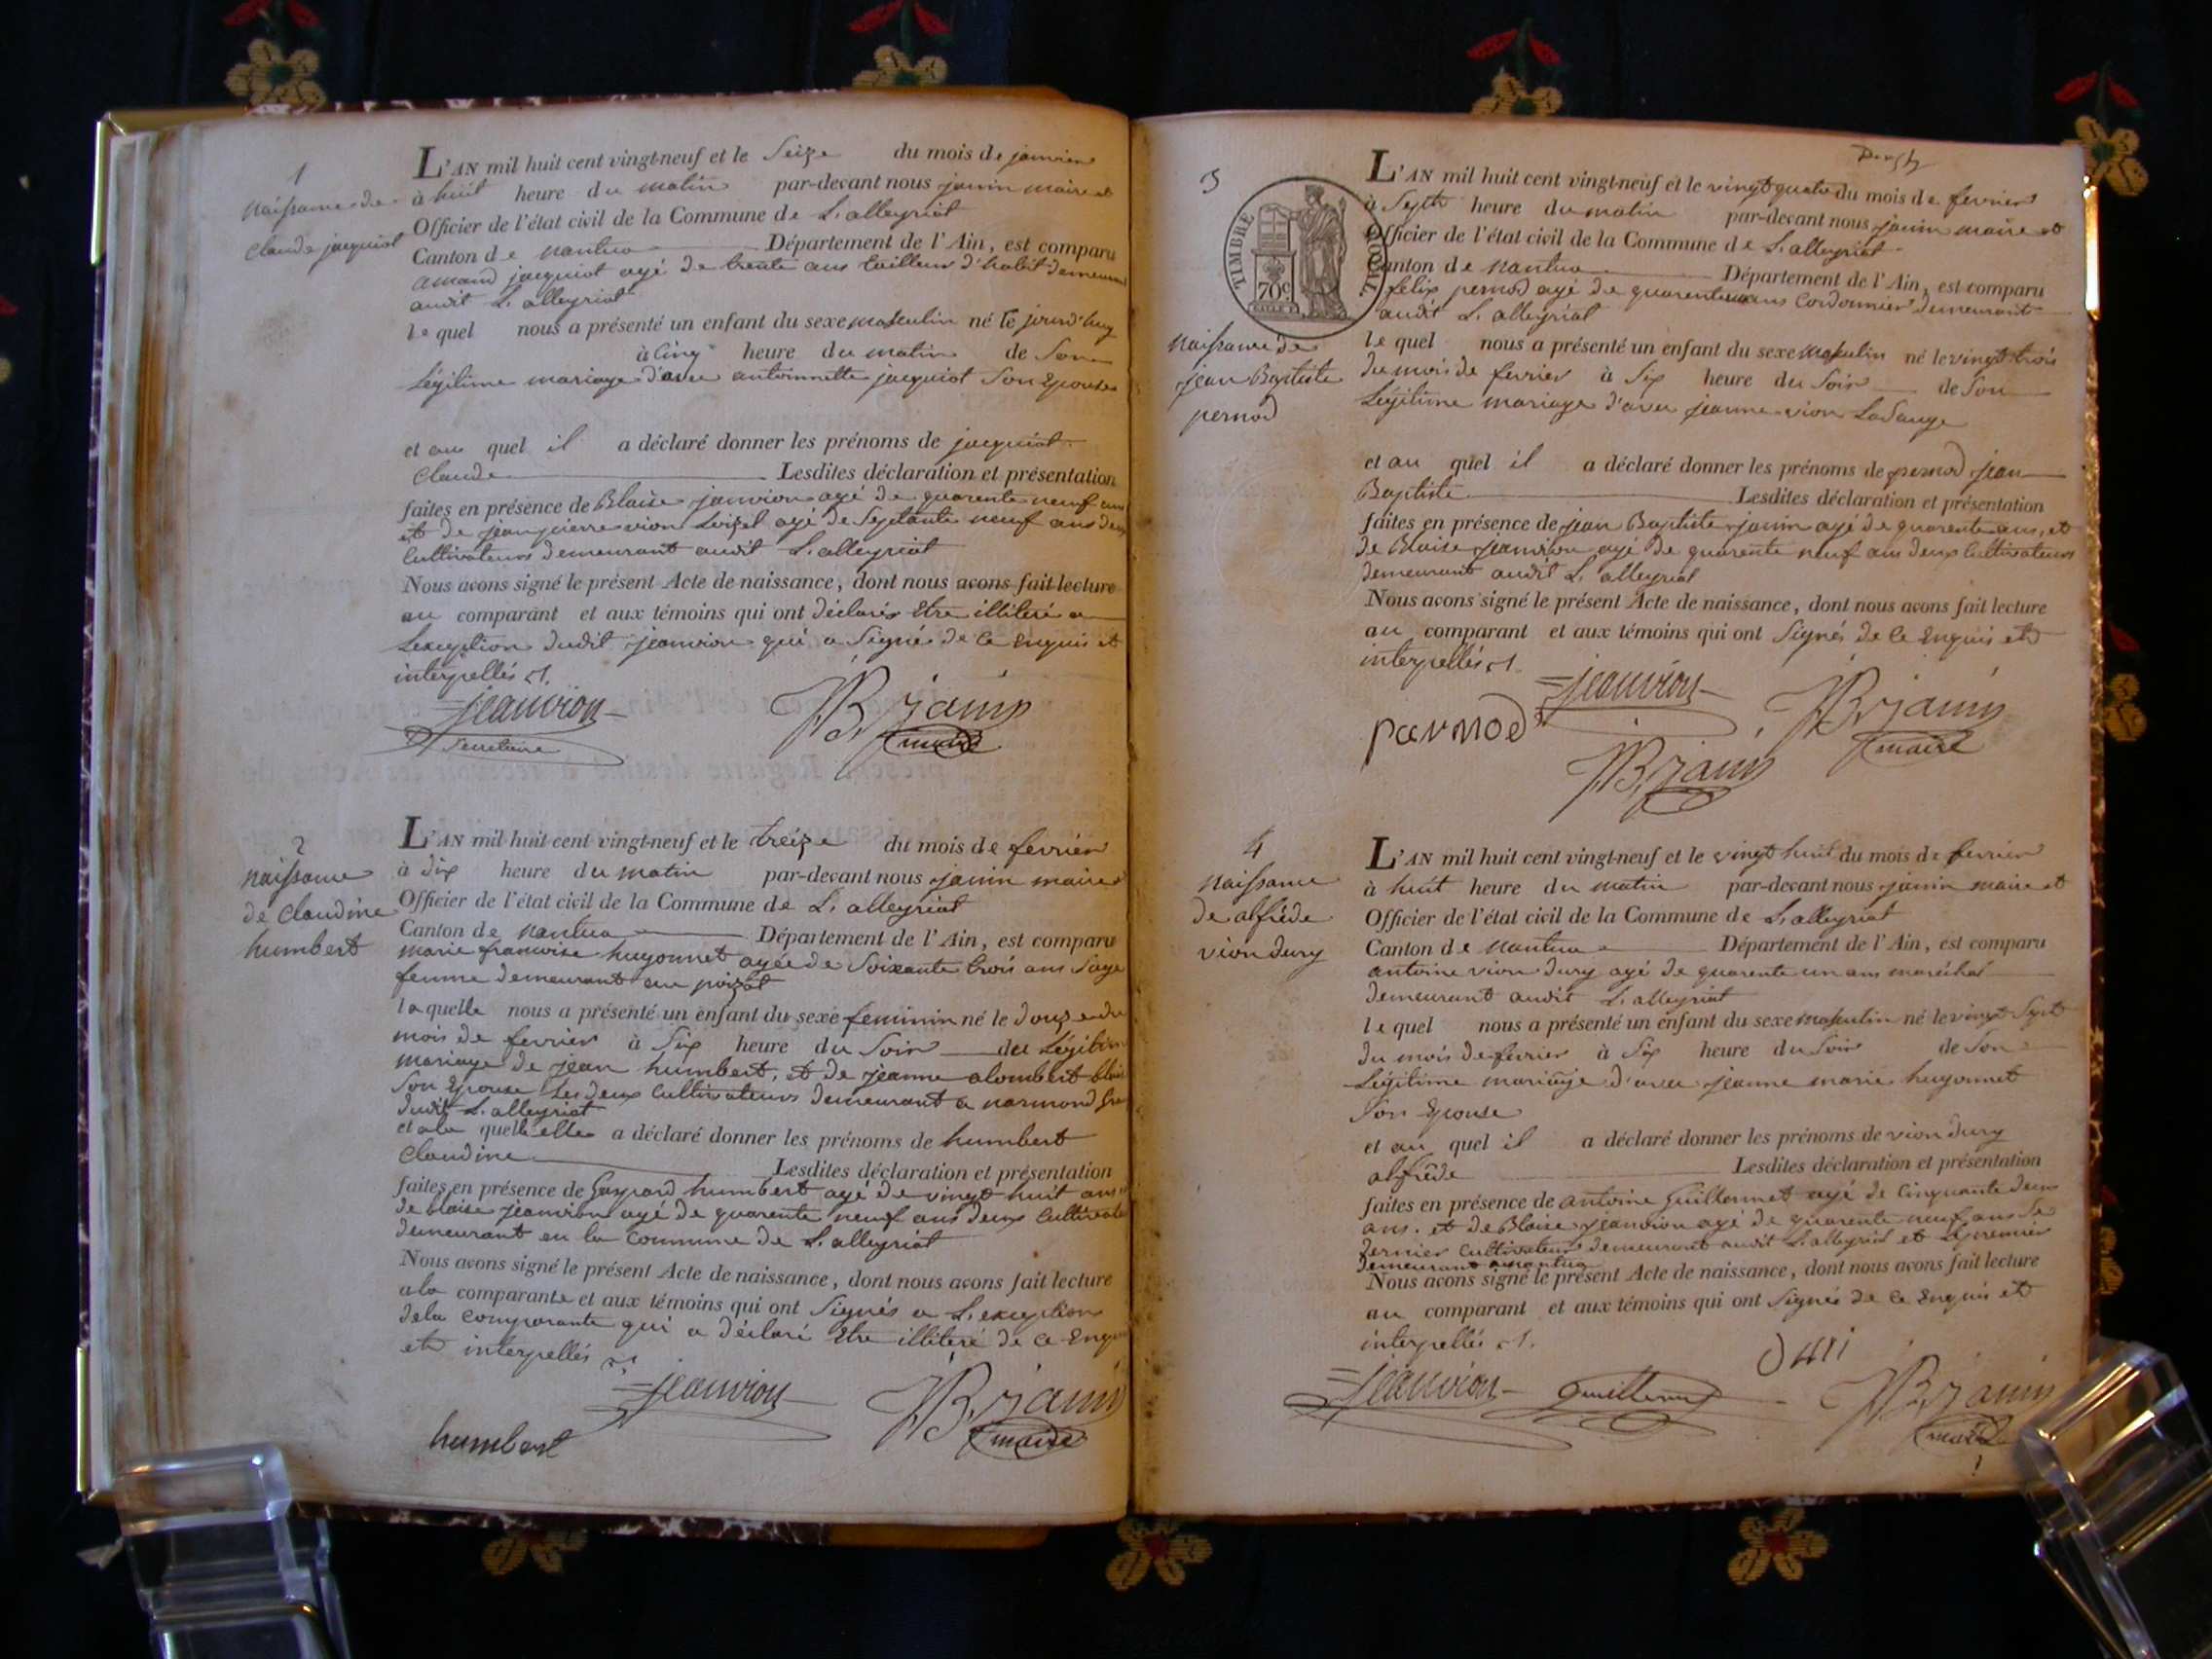 1
naissance de
Claude jacquiot
L'AN mil huit cent vingt-neuf et le Seize du mois de janvier
à huit heure du matin par-devant nous janin maire et
Officier de l'état civil de la Commune de L. alleyriat
Canton de nantua Département de l'Ain, est comparu
amand jacquiot agé de trente ans tailleur d'habit demeurant
audit L. alleyriat
le quel nous a présenté un enfant du sexe masculin né le jourd'huy
à Cinq heure du matin de Son
Légitime mariage d'avec antoinnette jacquiot Son Epouse
et au quel il a déclaré donner les prénoms de jacquiot
Claude Lesdites déclaration et présentation
faites en présence de Blaise janvion agé de quarente neuf ans
et de jean pierre vion Loizel agé de Septante neuf ans deux
Cultivateurs demeurant audit L. alleyriat
Nous avons signé le présent Acte de naissance, dont nous avons fait lecture
au comparant et aux témoins qui ont déclarés Etre illiteré a
Lexception dudit jeanvion qui a Signé de Ce Enquis et
interpellés
jeanvion
Secretaire
JB janin
maire
2
naissance
de Claudine
humbert
L'AN mil huit cent vingt-neuf et le treize du mois de fevrier
à dix heure du matin par-devant nous janin maire
Officier de l'état civil de la Commune de L. alleyriat
Canton de nantua Département de l'Ain, est comparu
marie francoise hugonnet agée de Soixante trois ans Sage
femme demeurant au poizat
la quelle nous a présenté un enfant du sexe feminin né le douze du
mois de fevrier à Six heure du Soir du Légitime
mariage de jean humbert, et de jeanne alombert
Son Epouse les deux Cultivateurs demeurant a
dudit L. alleyriat
et a la quelle elle a déclaré donner les prénoms de humbert
Claudine Lesdites déclaration et présentation
faites en présence de Gaspard humbert agé de vingt huit ans
de blaise jeanvion agé de quarente neuf ans deux Cultivateurs
demeurant en la Commune de L. alleyriat
Nous avons signé le présent Acte de naissance, dont nous avons fait lecture
a la comparante et aux témoins qui ont Signés a L. exception
de la comparante qui a déclaré Etre illiteré de Ce Enquis
et interpellés
jeanvion
JB janin
maire
humbert
3
TIMBRE ROYAL
70c
naissance de
jean Baptiste
pernod
L'AN mil huit cent vingt-neuf et le vingt quatre du mois de fevrier
à Sept heure du matin par-devant nous janin maire et
Officier de l'état civil de la Commune de L. alleyriat
Canton de nantua Département de l'Ain, est comparu
felix pernod agé de quarente ans Cordonnier demeurant
audit L. alleyriat
le quel nous a présenté un enfant du sexe masculin né le vingt trois
du mois de fevrier à Six heure du Soir de Son
Légitime mariage d'avec jeanne vion
et au quel il a déclaré donner les prénoms de pernod jean
Baptiste Lesdites déclaration et présentation
faites en présence de jean Baptiste janin agé de quarente ans, et
de Blaise jeanvion agé de quarente neuf ans deux Cultivateurs
demeurant audit L. alleyriat
Nous avons signé le présent Acte de naissance, dont nous avons fait lecture
au comparant et aux témoins qui ont Signés de Ce Enquis et
interpellés
jeanvion
parnod
JB janin
maire
JB janin
4
naissance
de alfrêde
vion dury
L'AN mil huit cent vingt-neuf et le vingt huit du mois de fevrier
à huit heure du matin par-devant nous janin maire et
Officier de l'état civil de la Commune de L. alleyriat
Canton de nantua Département de l'Ain, est comparu
antoine vion dury agé de quarente un ans maréchal
demeurant audit L. alleyriat
le quel nous a présenté un enfant du sexe masculin né le vingt Sept
du mois de fevrier à Six heure du Soir de Son
Légitime mariage d'avec jeanne marie hugonnet
Son Epouse
et au quel il a déclaré donner les prénoms de vion dury
alfrêde Lesdites déclaration et présentation
faites en présence de antoine Guillermet agé de Cinquante deux
ans. et de Blaise jeanvion agé de quarente neuf ans Le
dernier Cultivateur demeurant audit L. alleyriat et Le premier
demeurant a nantua
Nous avons signé le présent Acte de naissance, dont nous avons fait lecture
au comparant et aux témoins qui ont Signés de Ce Enquis et
interpellés
jeanvion
JB janin
maire